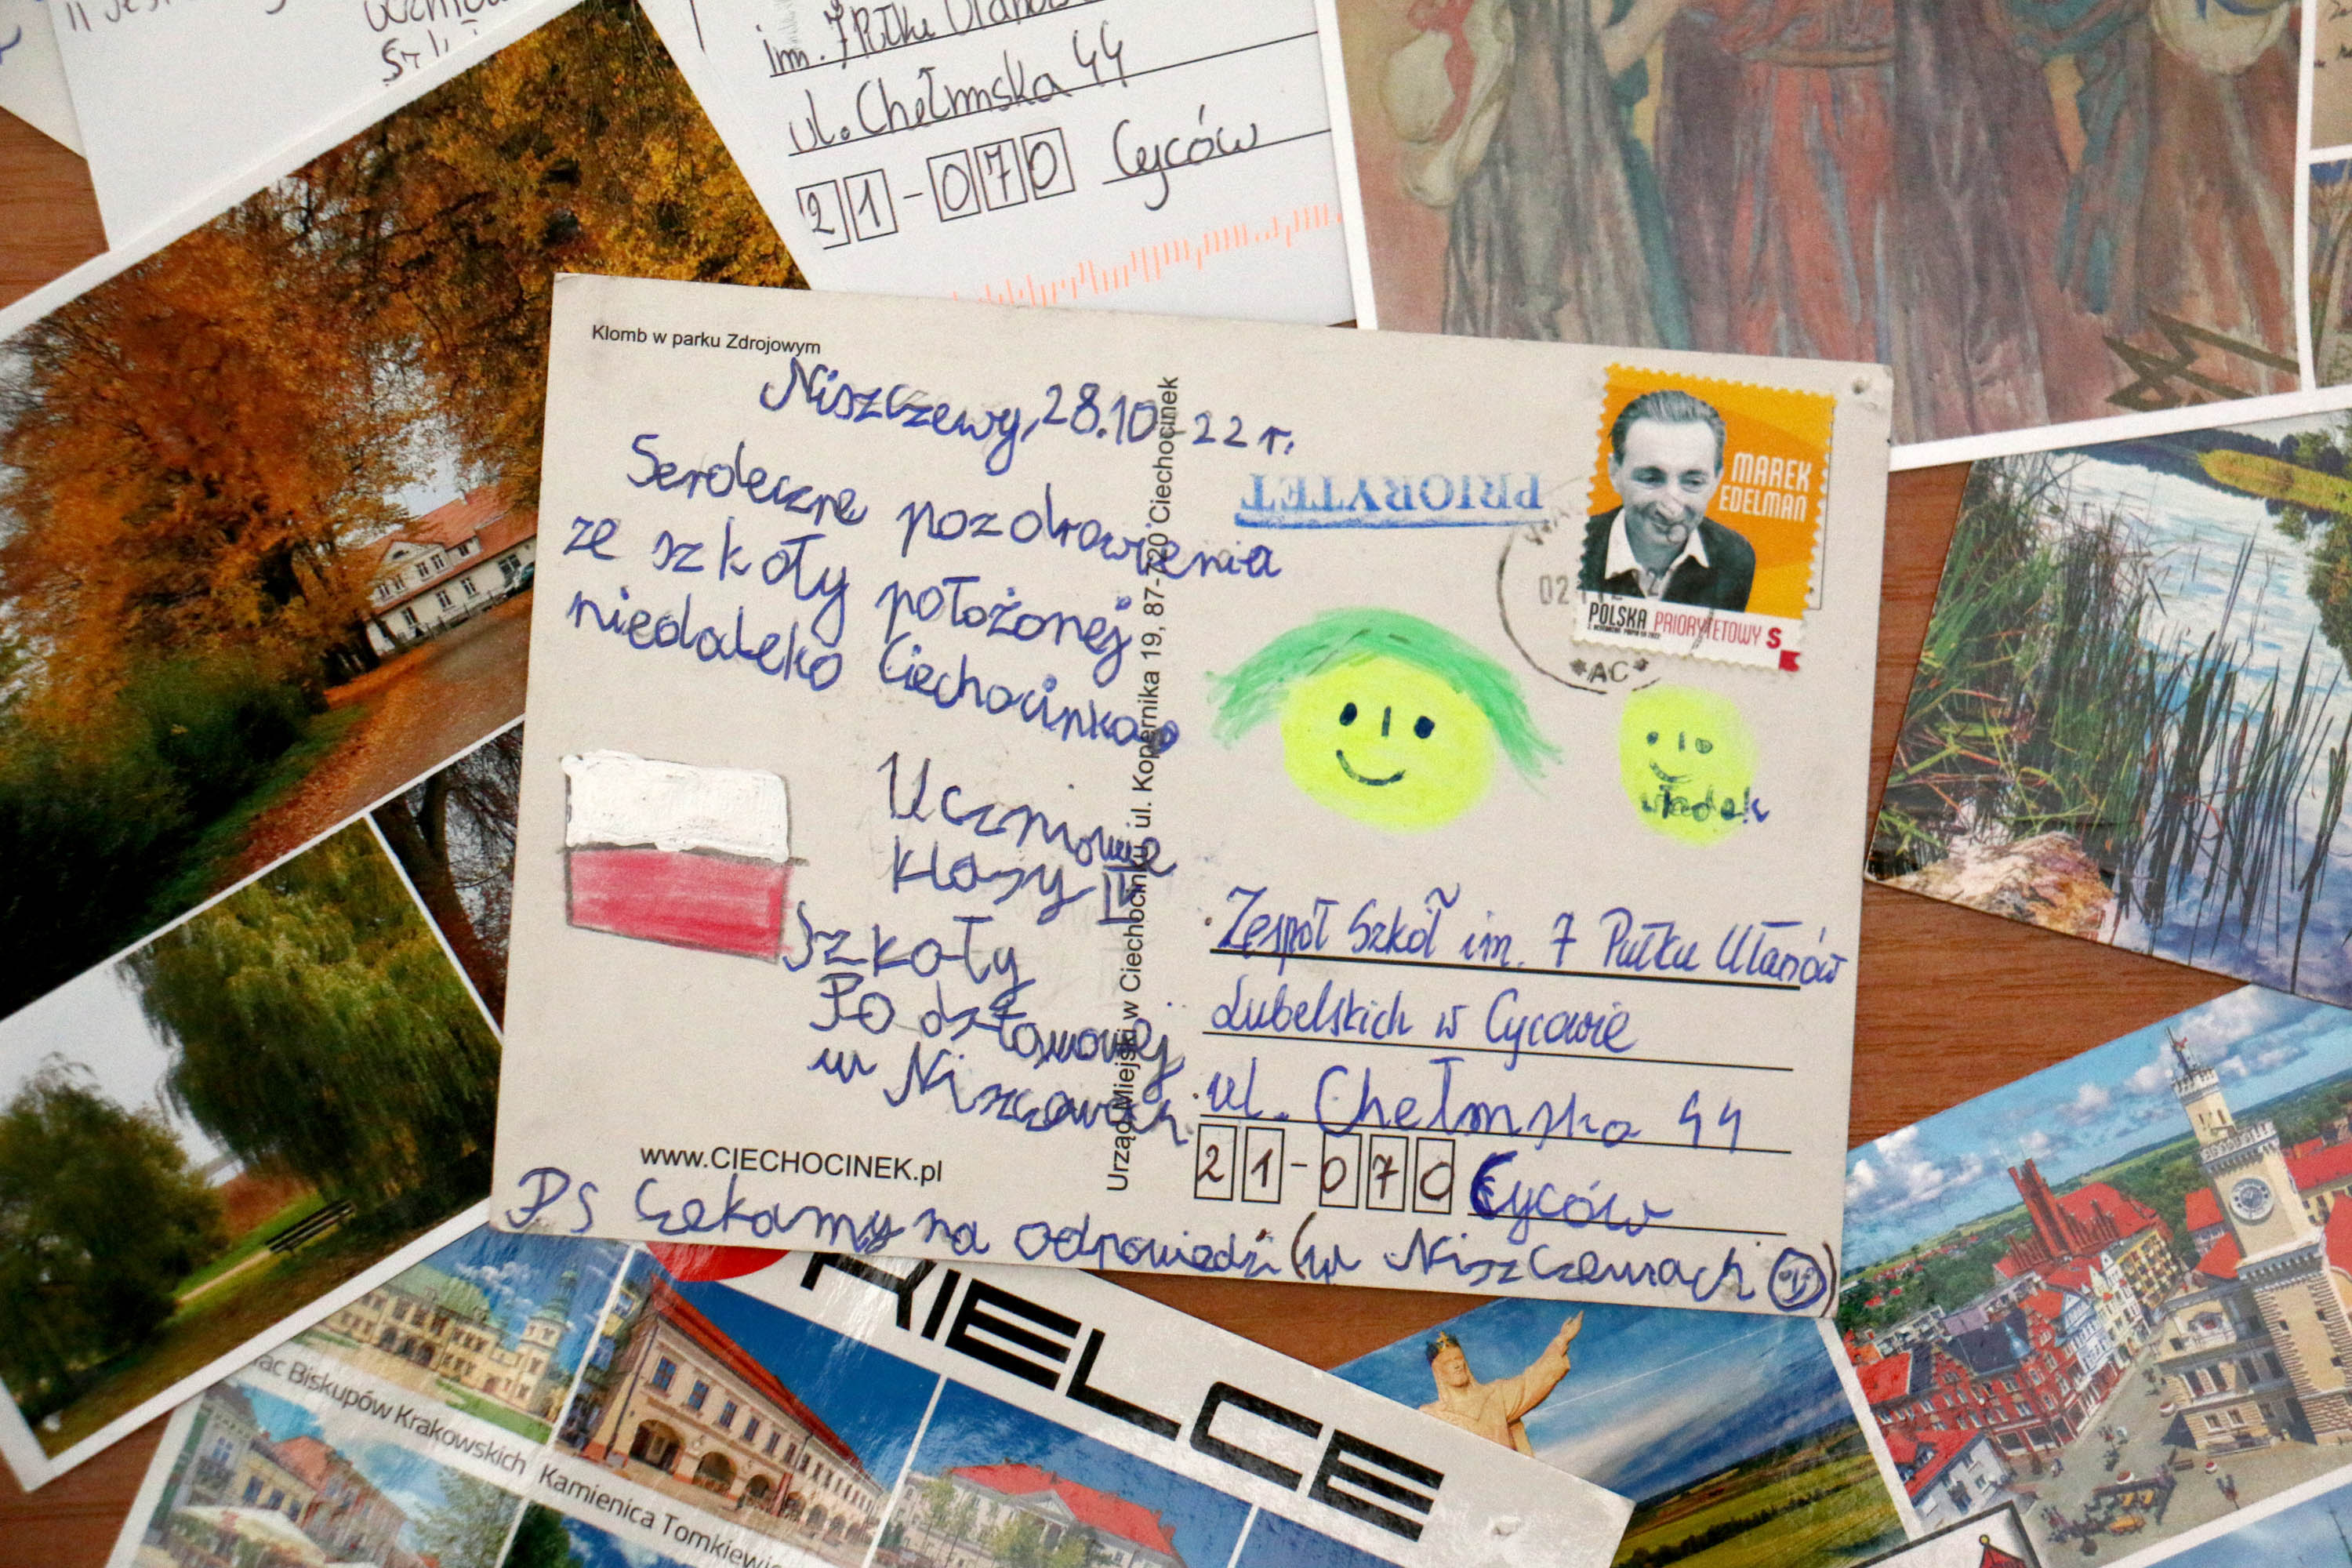 im. 7 Pułku Ułanów
ul. Chełmska 44
21-070 Cyców
Klomb w parku Zdrojowym
Niszczewy, 28.10.22 r.
Serdeczne pozdrowienia
ze szkoły położonej
niedaleko Ciechocinka.
Uczniowie
klasy
Szkoły
Podstawowej
w Niszczewach
www.CIECHOCINEK.pl
Ps Czekamy na odpowiedzi (w Niszczewach
Urząd Miejski w Ciechocinku ul. Kopernika 19, 87-720 Ciechocinek
PRIORYTET
MAREK
EDELMAN
POLSKA PRIORYTETOWY S
02
*AC*
władek
Zespół Szkół im. 7 Pułku Ułanów
Lubelskich w Cycowie
ul. Chełmska 44
21-070 Cyców
KIELCE
Biskupów Krakowskich
Kamienica